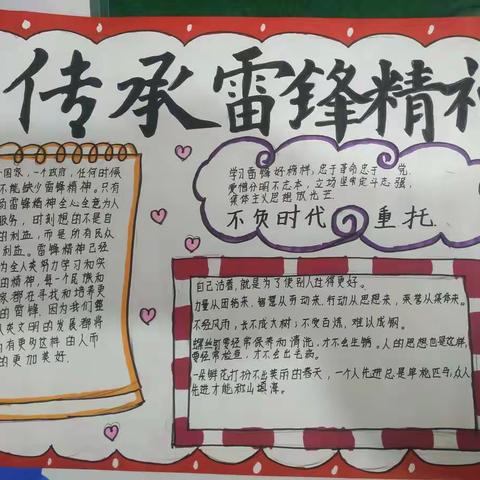 传承雷锋精神
国家,一个政府,任何时候
不能缺少雷锋精神。只有
雷锋精神全心全意为人
服务,时刻想的不是自
的利益,而是所有民众
利益。雷锋精神已经
为全人类努力学习和
的精神,每一个民族和
都在寻找和培养更
的雷锋,因为我们
人类文明的发展都将
有更多这样
的更加美好。
学习雷锋好榜样,忠于革命忠于 党,
爱憎分明不忘本,立场坚定斗志强,
集体主义思想放光芒
不负时代 重托
自己活着,就是为了使别人过得更好。
力量从团结来,智慧从劳动来,行动从思想来,荣誉从集体来。
不经风雨,长不成大树;不受百炼,难以成钢。
螺丝钉要经常保养和清洗,才不会生锈。人的思想也是这样,
要经常检查,才不会出毛病。
一朵鲜花打扮不出美丽的春天,一个人先进总是单枪匹马,众人
先进才能移山填海。